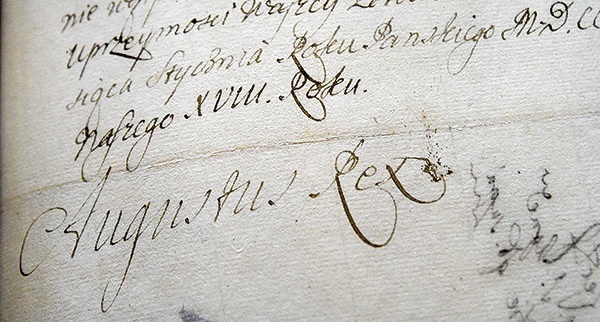 nie
Uprzeymosci Naszey
siąca Stycznia Roku Panskiego M.D.CC
Naszego XVIII. Roku.
Augustus Rex